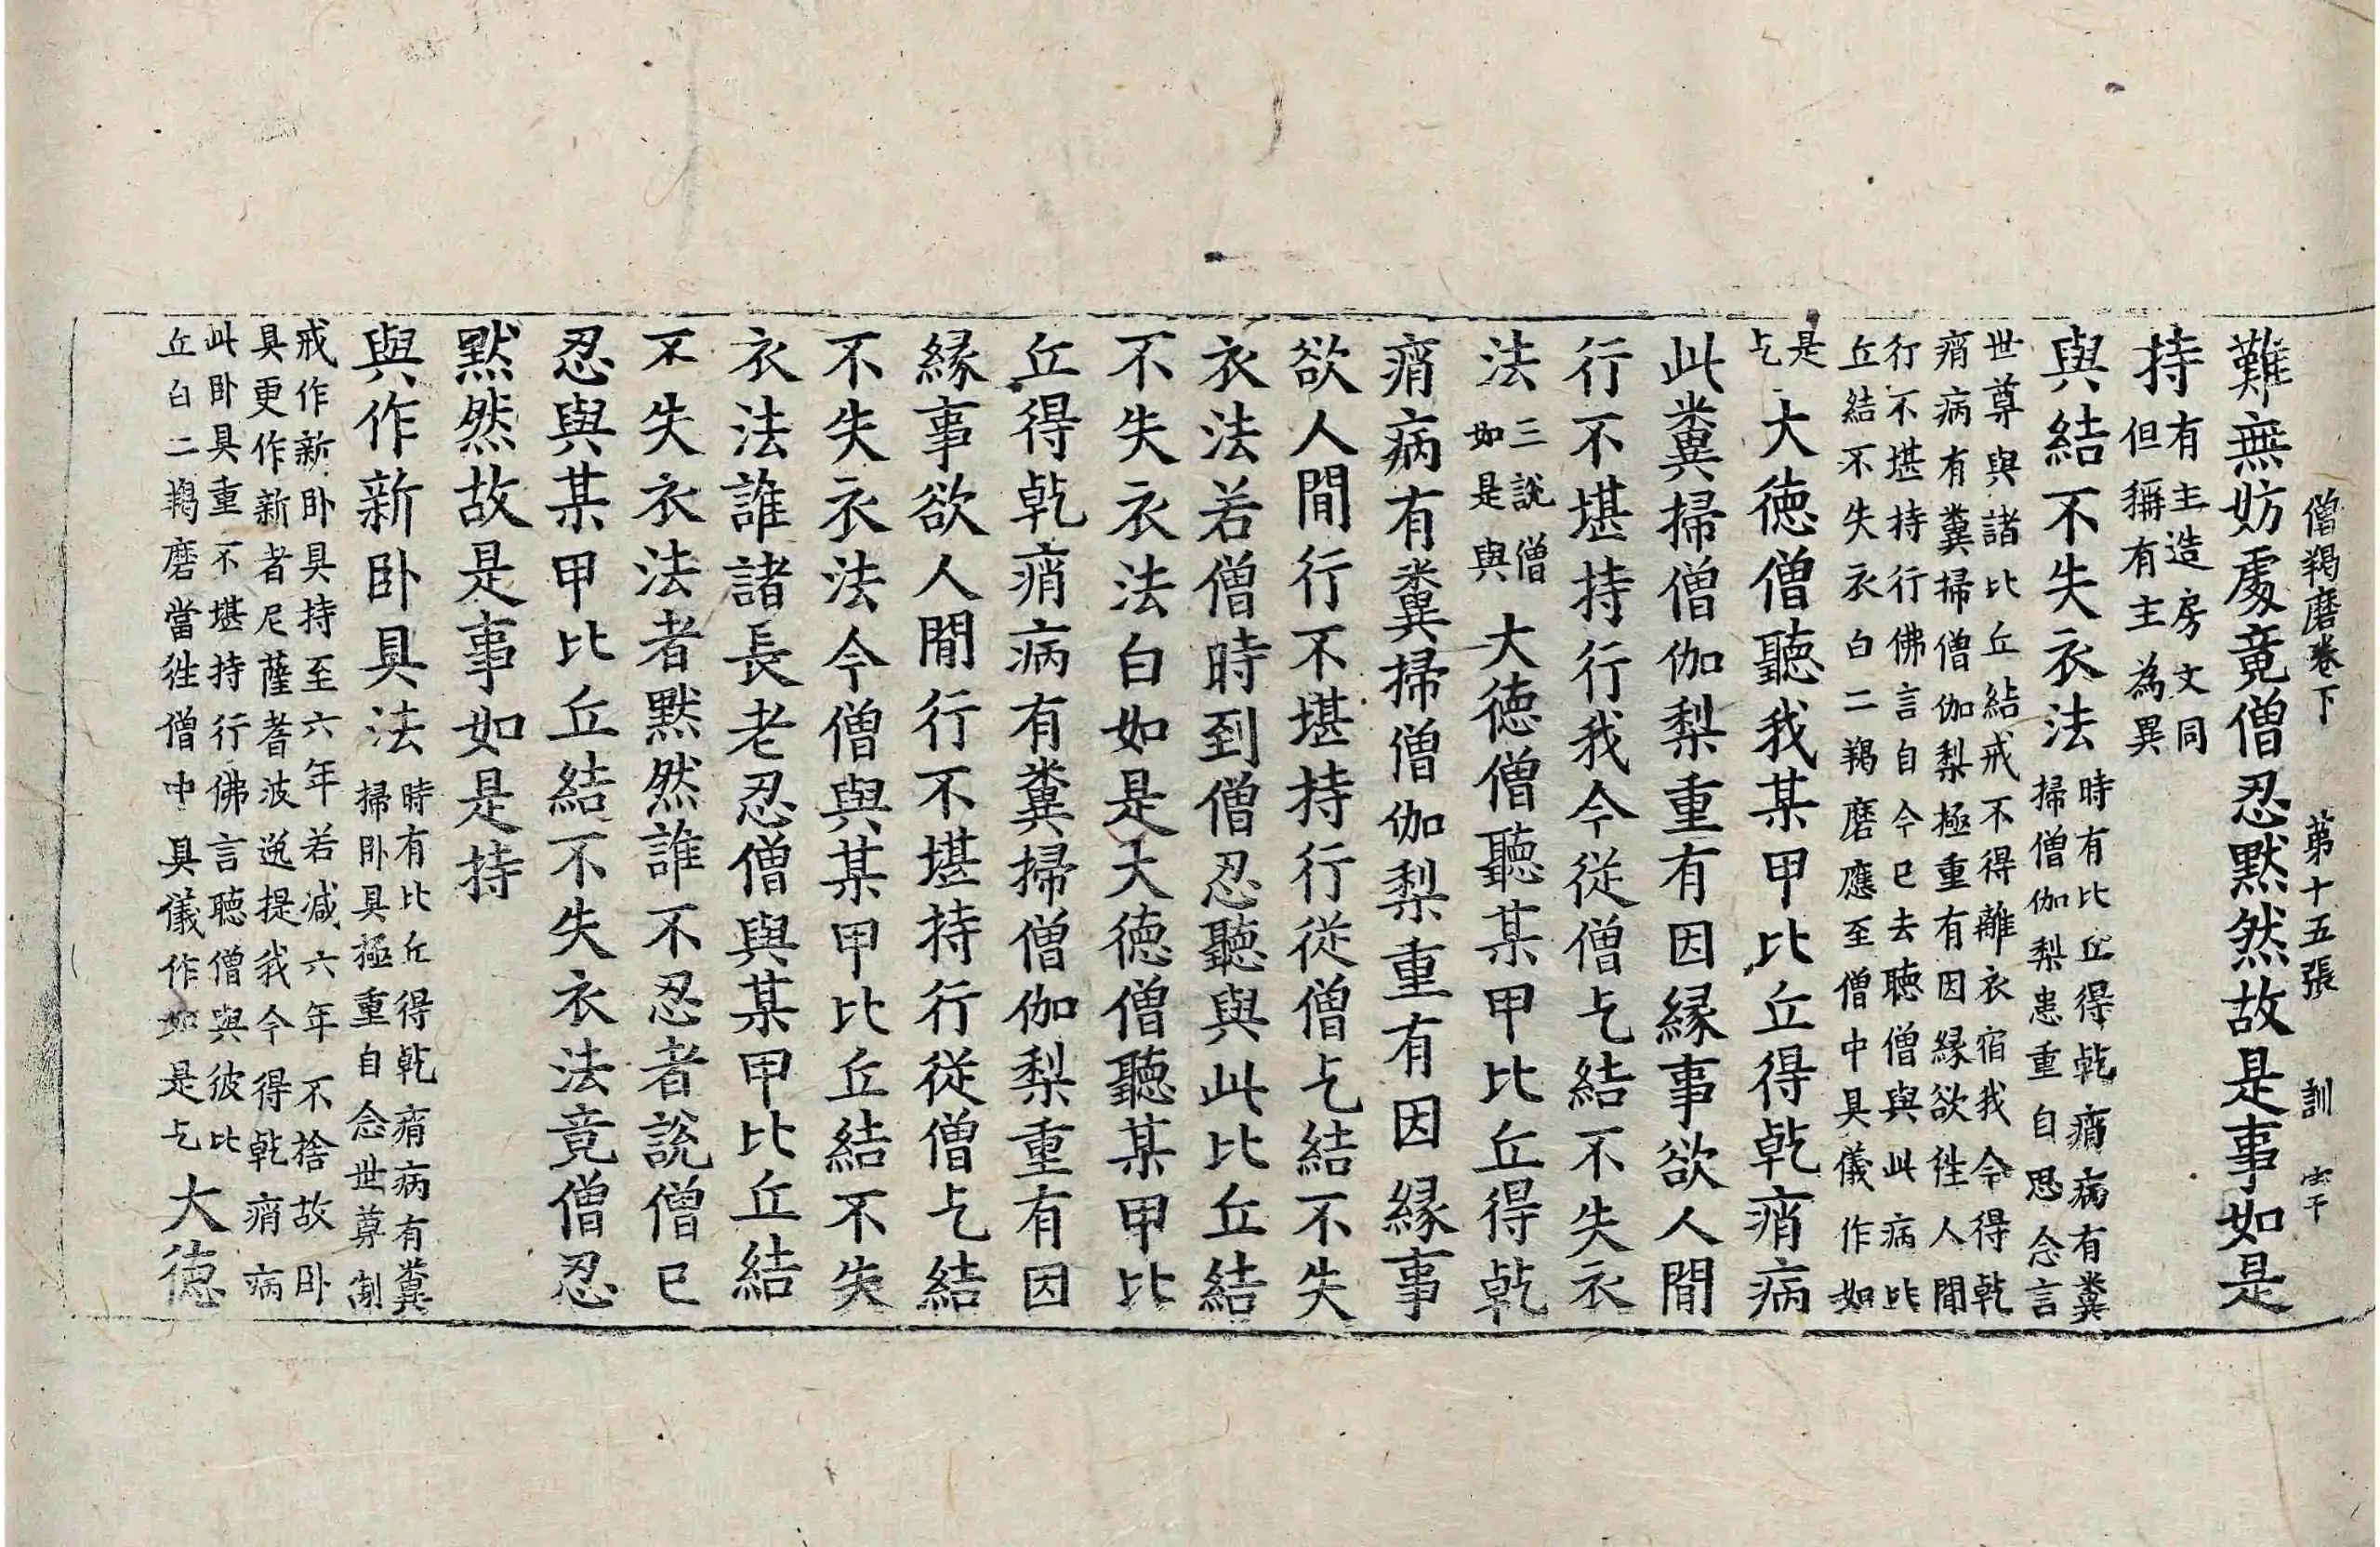 僧羯磨卷下　第十五張　訓
難無妨處竟僧忍默然故是事如是
持有主造房文同
但稱有主為異
與結不失衣法時有比丘得乾痟病有糞
掃僧伽梨患重自思念言
世尊與諸比丘結戒不得離衣宿我今得乾
痟病有糞掃僧伽梨極重有因緣欲往人間
行不堪持行佛言自今已去聽僧與此病比
丘結不失衣白二羯磨應至僧中具儀作如
是
乞大德僧聽我某甲比丘得乾痟病
此糞掃僧伽梨重有因緣事欲人間
行不堪持行我今從僧乞結不失衣
法三說僧
如是與大德僧聽某甲比丘得乾
痟病有糞掃僧伽梨重有因緣事
欲人間行不堪持行從僧乞結不失
衣法若僧時到僧忍聽與此比丘結
不失衣法白如是大德僧聽某甲比
丘得乾痟病有糞掃僧伽梨重有因
緣事欲人間行不堪持行從僧乞結
不失衣法今僧與某甲比丘結不失
衣法誰諸長老忍僧與某甲比丘結
不失衣法者默然誰不忍者說僧已
忍與某甲比丘結不失衣法竟僧忍
默然故是事如是持
與作新臥具法時有比丘得乾痟病有糞
掃臥具極重自念世尊制
戒作新臥具持至六年若減六年不捨故臥
具更作新者尼薩耆波逸提我今得乾痟病
此臥具重不堪持行佛言聽僧與彼比
丘白二羯磨當往僧中具儀作如是乞大德